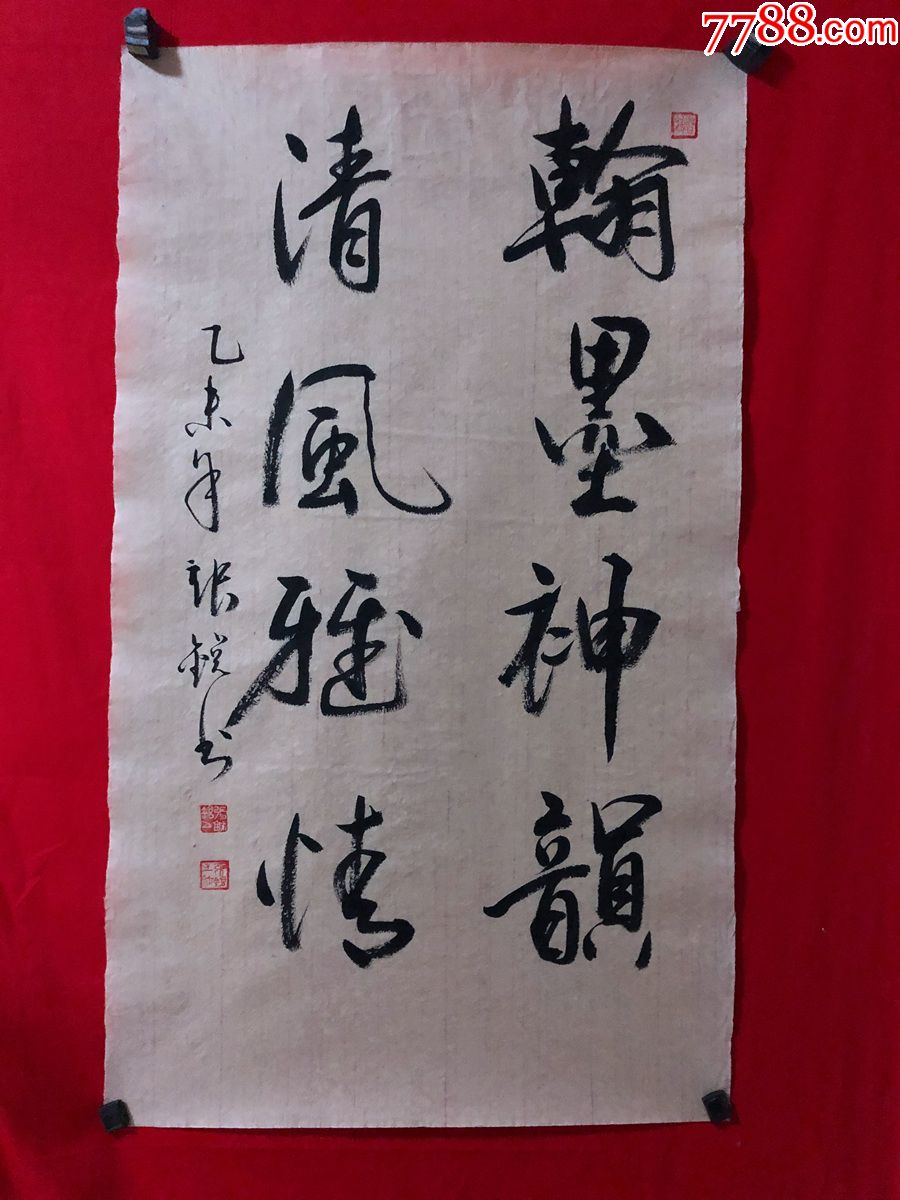 7788.com
翰墨神韻
清風雅情
乙未年張銳书